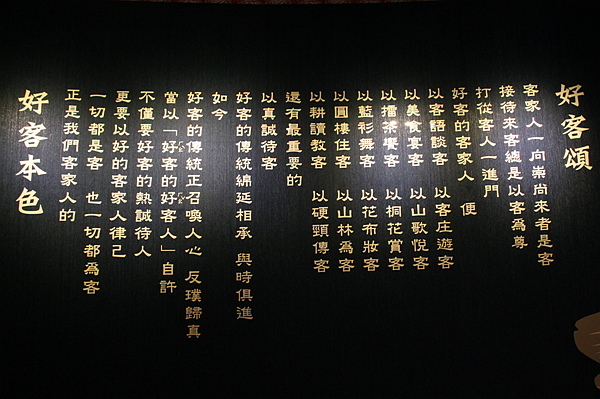 好客頌
客家人一向崇尚來者是客
接待來客總是以客為尊
打從客人一進門
好客的客家人　便
以客語談客　以客庄遊客
以美食宴客　以山歌悅客
以擂茶饗客　以桐花賞客
以藍衫舞客　以花布妝客
以圓樓住客　以山林為客
以耕讀教客　以硬頸傳客
還有最重要的
以真誠待客
好客的傳統綿延相承　與時俱進
如今
好客的傳統正召喚人心　反璞歸真
當以「好客的好客人」自許
不僅要好客的熱誠待人
更要以好的客家人律己
一切都是客　也一切都為客
正是我們客家人的
好客本色